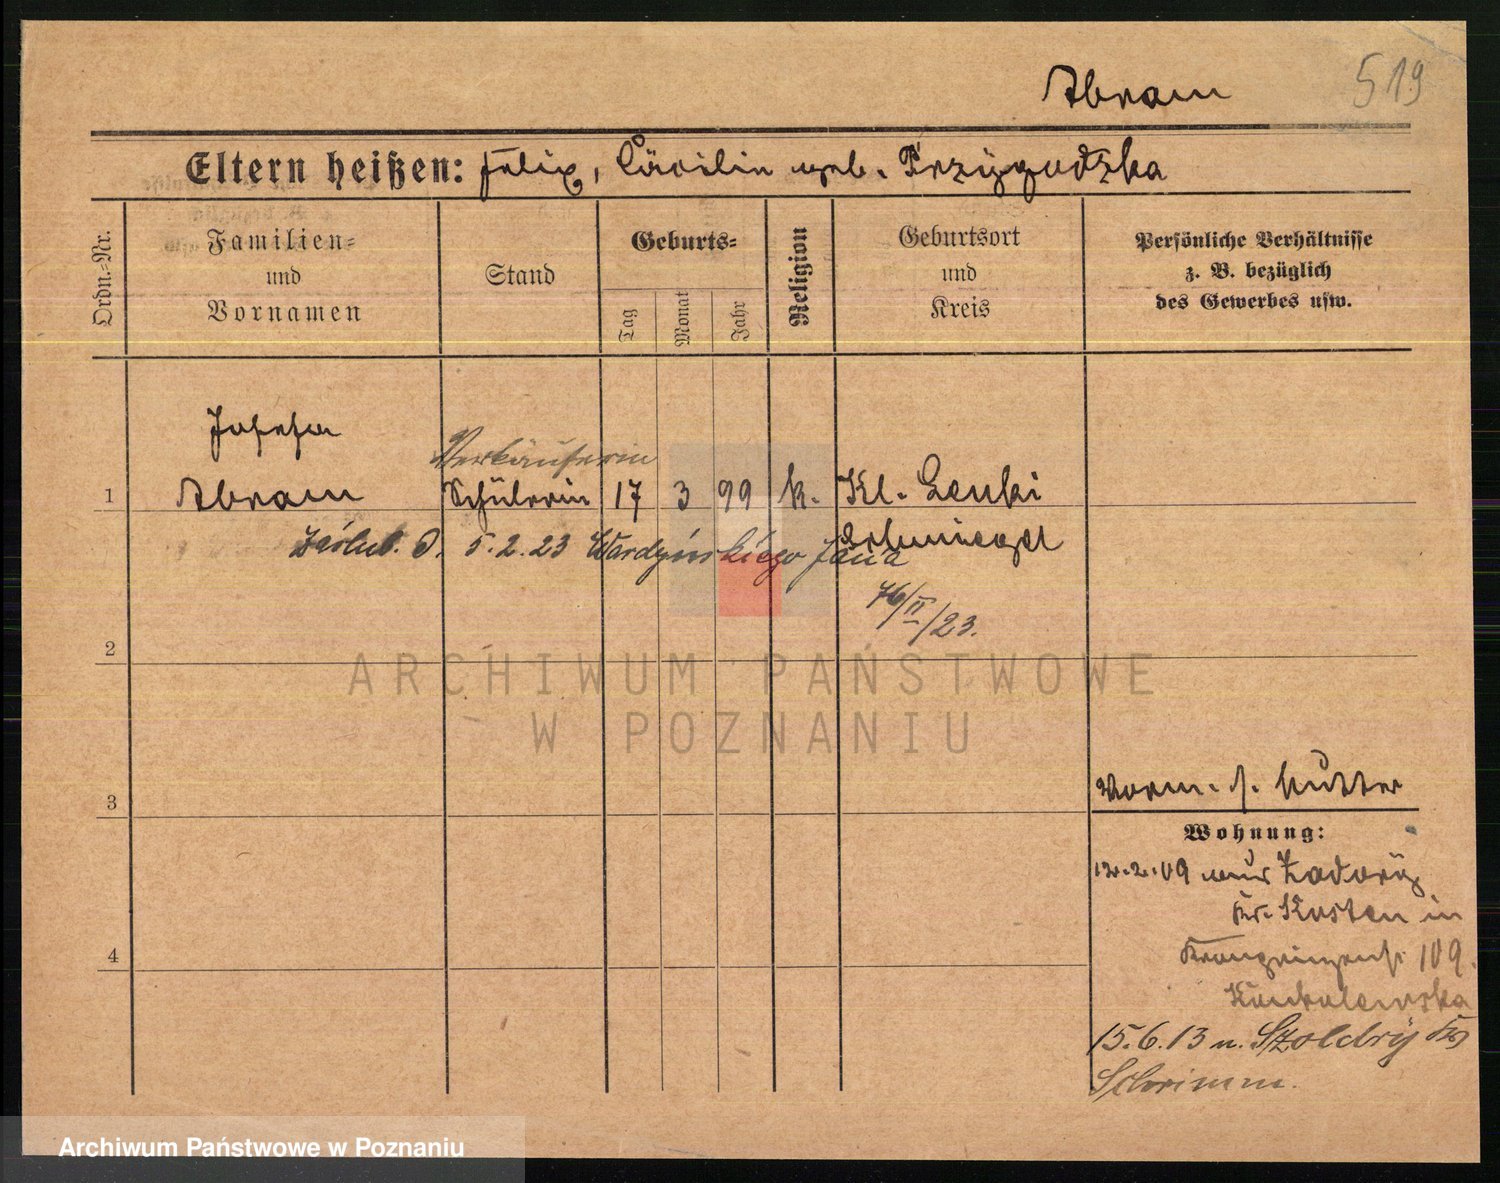 519
Abram
Eltern heißen: Felix, Cäcilie geb. Przygodzka
Ordn.-Nr.
Familien-
und
Vornamen
Stand
Geburts-
Tag
Monat
Jahr
Religion
Geburtsort
und
Kreis
Persönliche Verhältnisse
z. B. bezüglich
des Gewerbes usw.
Josefa
Verkäuferin
1 Abram Schülerin 17 3 99 k. Kl. Lenki
Schmiegel
Zaślub. d. 5.2.23 Wardyńskiego Jana
76/II/23.
2
3
4
Vorm. s. Mutter
Wohnung:
12.2.09 aus Zadory
Kr. Kosten in
Kronprinzenst. 109.
15.6.13 n. Szoldry Krs
Schrimm.
ARCHIWUM PAŃSTWOWE
W POZNANIU
Archiwum Państwowe w Poznaniu